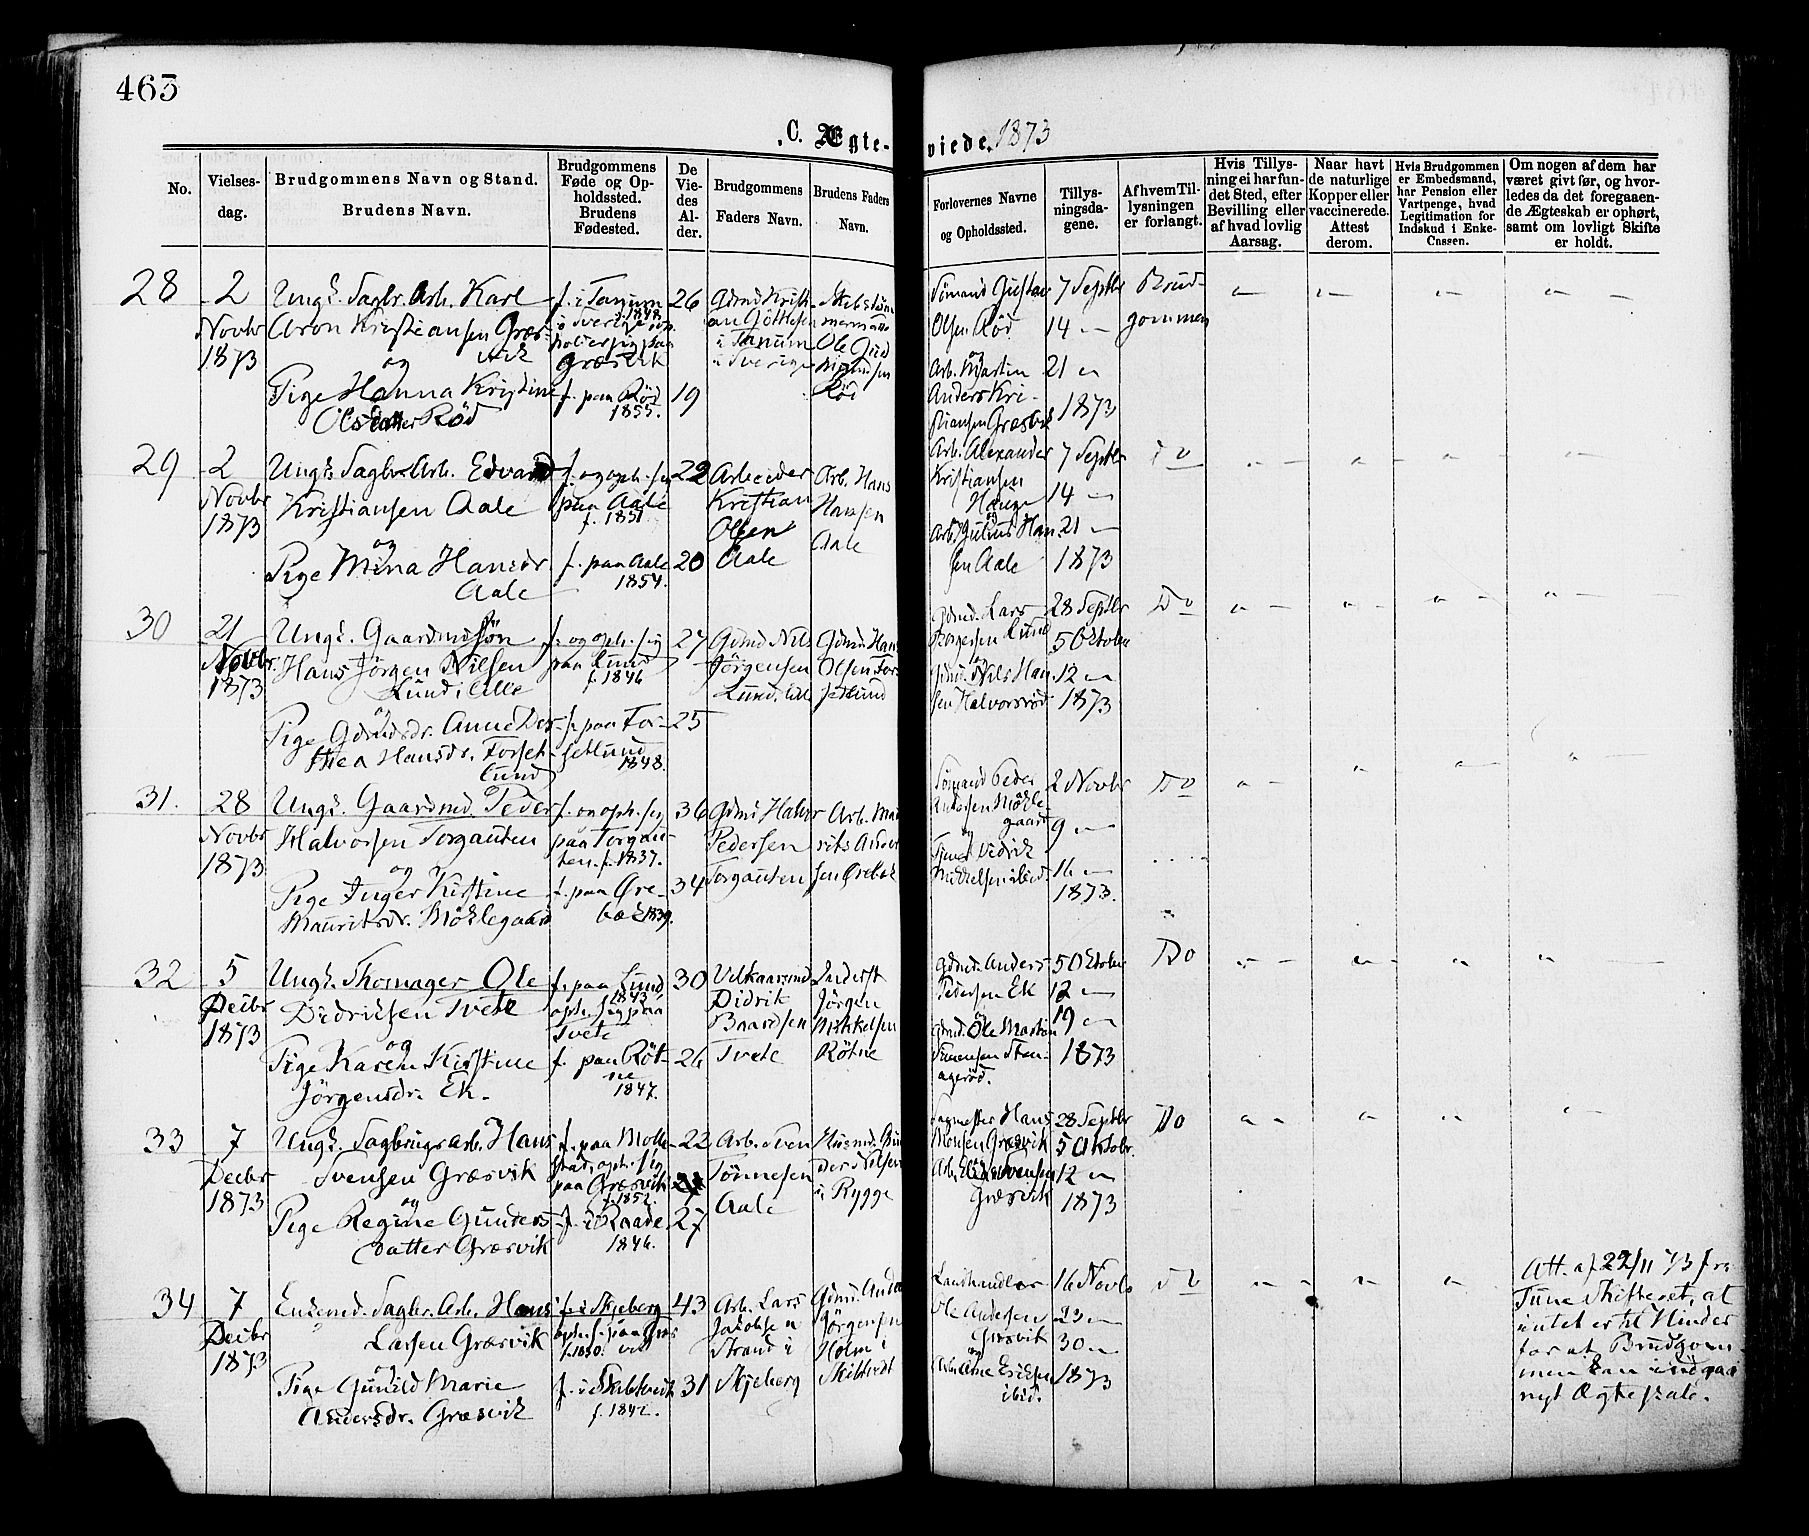 463
C. Ægte-viede. 1873
No.
Vielses-
dag.
Brudgommens Navn og Stand.
Brudens Navn.
Brudgommens
Føde og Op-
holdssted.
Brudens
Fødested.
De
Vie-
des
Al-
der.
Brudgommens
Faders Navn.
Brudens Faders
Navn.
Forlovernes Navne
og Opholdssted.
Tillys-
ningsda-
gene.
Af hvem Til-
lysningen
er forlangt.
Hvis Tillys-
ning ei har fun-
det Sted, efter
Bevilling eller
af hvad lovlig
Aarsag.
Naar havt
de naturlige
Kopper eller
vaccinerede.
Attest
derom.
Hvis Brudgommen
er Embedsmand,
har Pension eller
Vartpenge, hvad
Legitimation for
Indskud i Enke-
Cassen.
Om nogen af dem har
været givt før, og hvor-
ledes da det foregaaen-
de Ægteskab er ophørt,
samt om lovligt Skifte
er holdt.
28
2
Novbr
1873
Ungk. Sagbr. Arb. Karl
Aron Kristiansen Græs-
og vik
Pige Hanna Kristine
Olsdatter Rød
f. i Tanum
1848
i Sverige op-
holder sig paa
Græsvik
f. paa Rød
1855.
26
19
Gdmd Kristi-
an Göttesen
i Tanum
i Sverige
Skibstöm-
mermand
Ole Gud
mundsen
Rød
Sømand Gustav
Olsen Rød
og
Arb. Martin
Anders Kri-
stiansen Græsvik
7 Septbr
14 "
21 "
1873
Brud-
gommen
29
2
Novbr
1873
Ungk. Sagbr. Arb. Edvard
Kristiansen Aale
og
Pige Mina Hansdr
Aale
f. og oph. sig
paa Aale
f. 1851.
f. paa Aale
1854.
22
20
Arbeider
Kristian
Olsen
Aale
Arb. Hans
Hansen
Aale
Arb. Alexander
Kristiansen
Hauge
og
Arb. Julius Han-
sen Aale
7 Septbr
14 "
21 "
1873
Do
30
21
Novbr.
1873
Ungk. Gaardmdsøn
Hans Jörgen Nilsen
Lund lille
og
Pige Gdmdsdr. Anne Dor-
thea Hansdr. Torset-
lund
f. og oph. sig
paa Lund
f. 1846
f. paa Tor-
setlund
1848.
27
25
Gdmd Nils
Jörgensen
Lund. lill
Gdmd Hans
Olsen Tor-
setlund
Gdmd. Lars
Borgersen Lund
og
Gdmd. Nils Han-
sen Halvorsrød
28 Septbr
5 Oktober
12 "
1873
Do
31.
28
Novbr
1873
Ungk. Gaardmd. Peder
Halvorsen Torgauten
og
Pige Inger Kirstine
Mauritsdr. Möklegaard
f. og oph. sig
paa Torgau-
ten. f. 1837.
f. paa Øre-
bæk 1839.
36
34
Gdmd Halvor
Pedersen
Torgauten
Arb. Mau
rits Anders
sen Ørebæk
Sømand Peder
Andersen Mökle-
gaard
og
2 Novbr
9 "
16 "
1873.
Do
32
5
Decbr
1873
Ungk. Skomager Ole
Didriksen Tvete
og
Pige Karen Kirstine
Jörgensdr. Ek.
f. paa Lund
1843
oph. sig paa
Tvete
f. paa Röt-
ne
1847.
30
26
Didrik
Baardsen
Tvete
Inderst
Jörgen
Mikkelsen
Rötne
Gdmd. Anders
Pedersen Ek
og
Gdmd. Ole Martin
Simensen Sten-
agerød.
5 Oktober
12 "
19 "
1873
Do
33
7
Decbr
1873
Ungk. Sagbrugsarb. Hans
Svensen Græsvik
og
Pige Regine Gunders-
datter Græsvik
f. paa Molle-
stad, oph. sig
paa Græsvik
f. 1852.
f. i Raade
1846.
22
27
Arb. Sven
Tönnesen
Aale
Husmd. Gun
der Nilsen
i Rygge
Sagmester Hans
Monsen Græsvik
og
Arb. Svensen
Græsvik
28 Septbr
5 Oktobr.
12 "
1873
Do
34
7
Decbr
1873
Enkemd. Sagbr. Arb. Hans
Larsen Græsvik
og
Pige Gunild Marie
Andersdr. Græsvik
f. i Skjeberg
oph. s. paa Græs
f. 1830. vik
f. i Skibtvedt
f. 1842.
43
31
Arb. Lars
Jakobsen
Strand i
Skjeberg
Gdmd. Anders
Jörgensen
Holm i
Skibtvedt
Landhandler
Ole Andersen
Græsvik
og
Arb. Arne Ericksen
ibid.
16 Novbr
23 "
30 "
1873
Do
Att. af 22/11 73 fra
Tune Skifteret, at
intet er til Hinder
for at Brudgom-
men kan indgaa
nyt Ægteskab.